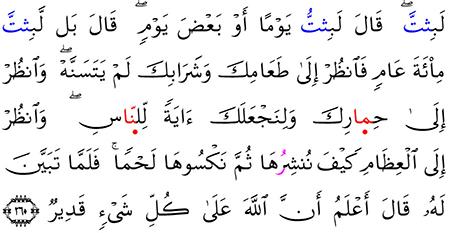 لَبِثتَّ ۖ قَالَ لَبِثتُّ يَوْمًا أَوْ بَعْضَ يَوْمٍ ۖ قَالَ بَل لَّبِثتَّ
مِاْئَةَ عَامٍ فَٱنظُرْ إِلَىٰ طَعَامِكَ وَشَرَابِكَ لَمْ يَتَسَنَّهْ ۖ وَٱنظُرْ
إِلَىٰ حِمارِكَ وَلِنَجْعَلَكَ ءَايَةً لِّلنَّاسِ ۖ وَٱنظُرْ
إِلَى ٱلْعِظَامِ كَيْفَ نُنشِرُهَا ثُمَّ نَكْسُوهَا لَحْمًا ۚ فَلَمَّا تَبَيَّنَ
لَهُۥ قَالَ أَعْلَمُ أَنَّ ٱللَّهَ عَلَىٰ كُلِّ شَىْءٍ قَدِيرٌ